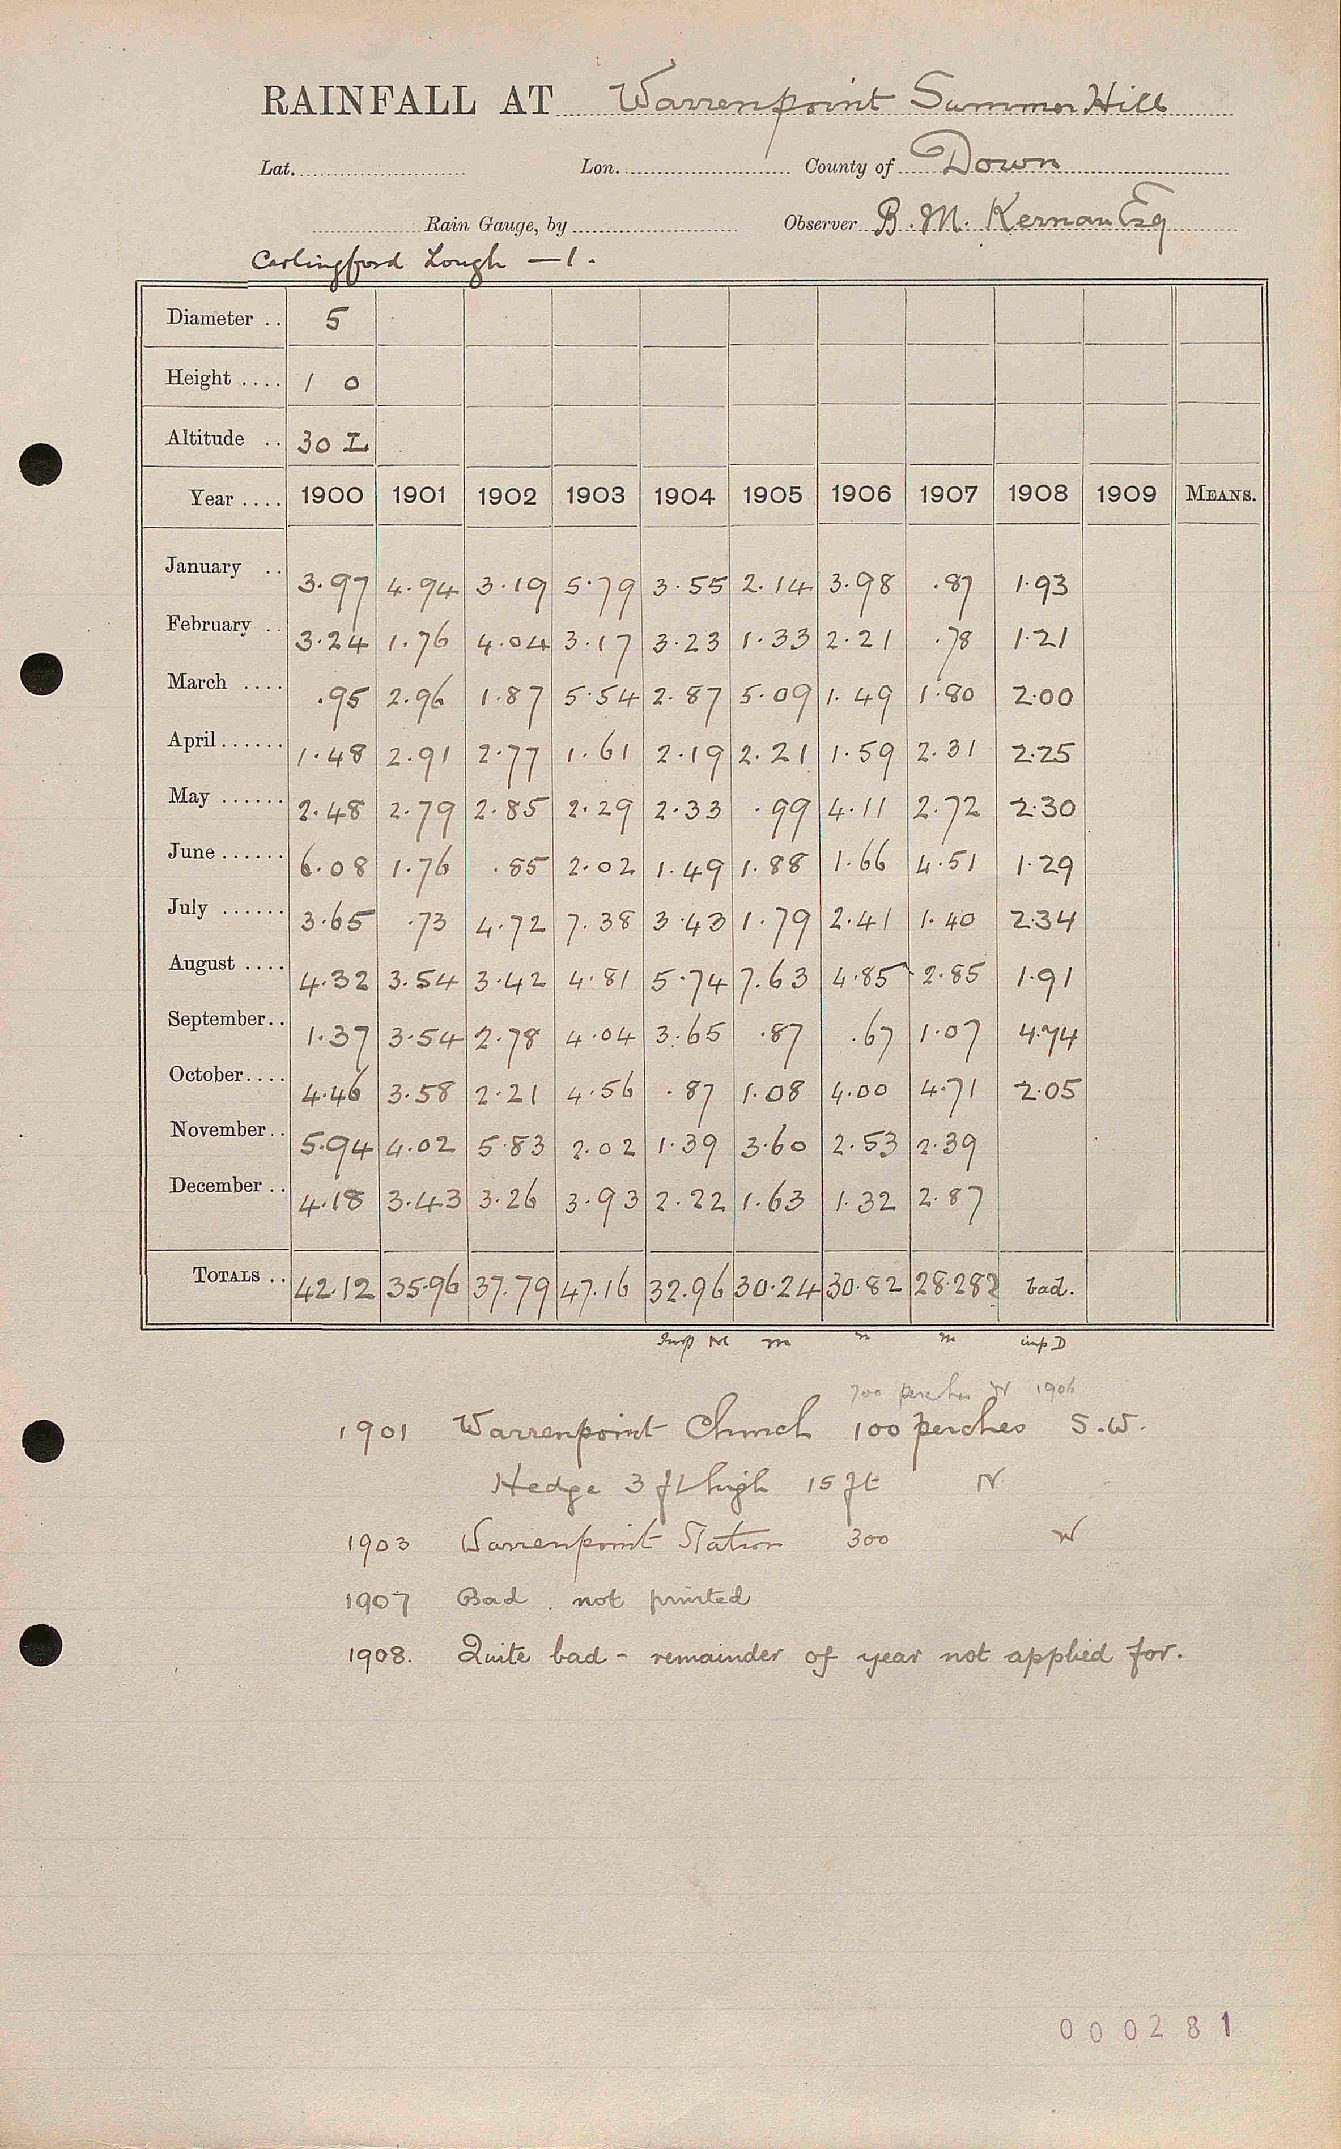 RAINFALL AT Warrenpoint Summer Hill
Lat. Lon. County of Down
Rain Gauge, by Observer B. M. Kernan Esq
Carlingford Lough — 1.
Diameter .. 5
Height .... 1 0
Altitude .. 30 L
Year .... 1900 1901 1902 1903 1904 1905 1906 1907 1908 1909 MEANS.
January .. 3.97 4.94 3.19 5.79 3.55 2.14 3.98 .87 1.93
February .. 3.24 1.76 4.04 3.17 3.23 1.33 2.21 .78 1.21
March .... .95 2.96 1.87 5.54 2.87 5.09 1.49 1.80 2.00
April ...... 1.48 2.91 2.77 1.61 2.19 2.21 1.59 2.31 2.25
May ...... 2.48 2.79 2.85 2.29 2.33 .99 4.11 2.72 2.30
June ...... 6.08 1.76 .85 2.02 1.49 1.88 1.66 4.51 1.29
July ...... 3.65 .73 4.72 7.38 3.43 1.79 2.41 1.40 2.34
August .... 4.32 3.54 3.42 4.81 5.74 7.63 4.85 2.85 1.91
September.. 1.37 3.54 2.78 4.04 3.65 .87 .67 1.07 4.74
October.... 4.46 3.58 2.21 4.56 .87 1.08 4.00 4.71 2.05
November.. 5.94 4.02 5.83 2.02 1.39 3.60 2.53 2.39
December .. 4.18 3.43 3.26 3.93 2.22 1.63 1.32 2.87
TOTALS .. 42.12 35.96 37.79 47.16 32.96 30.24 30.82 28.28 bad.
m m m imp D
700 perches W 1906
1901 Warrenpoint Church 100 perches S.W.
Hedge 3 ft high 15 ft N
1903 Warrenpoint Station 300 W
1907 Bad. not printed
1908. Quite bad - remainder of year not applied for.
000281